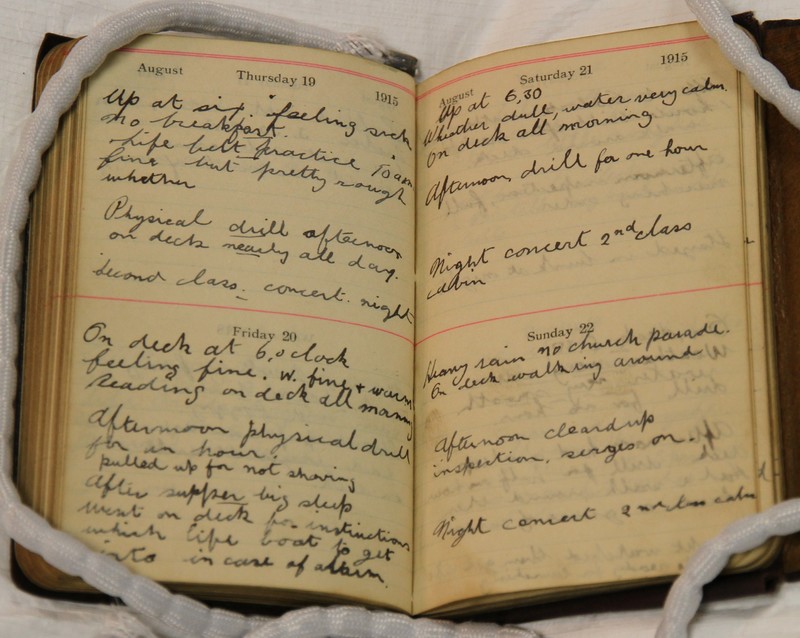 August Thursday 19 1915
Up at six feeling sick
no breakfast.
Life belt practice 10am
fine but pretty rough
whether
Physical drill afternoon
on deck nearly all day.
Second class concert night
Friday 20
On deck at 6,oclock
feeling fine. W. fine + warm
reading on deck all morning
Afternoon physical drill
for in hour.
pulled up for not shaving
After supper big sleep
went on deck for instructions
which life boat to get
into in case of alarm.
August Saturday 21 1915
Up at 6,30
Wheather dull, water very calm.
On deck all morning
Afternoon drill for one hour
Night concert 2nd class
cabin
Sunday 22
Heavy rain no church parade.
On deck walking around
Afternoon cleard up
inspection, serges on.
Night concert 2nd class cabin